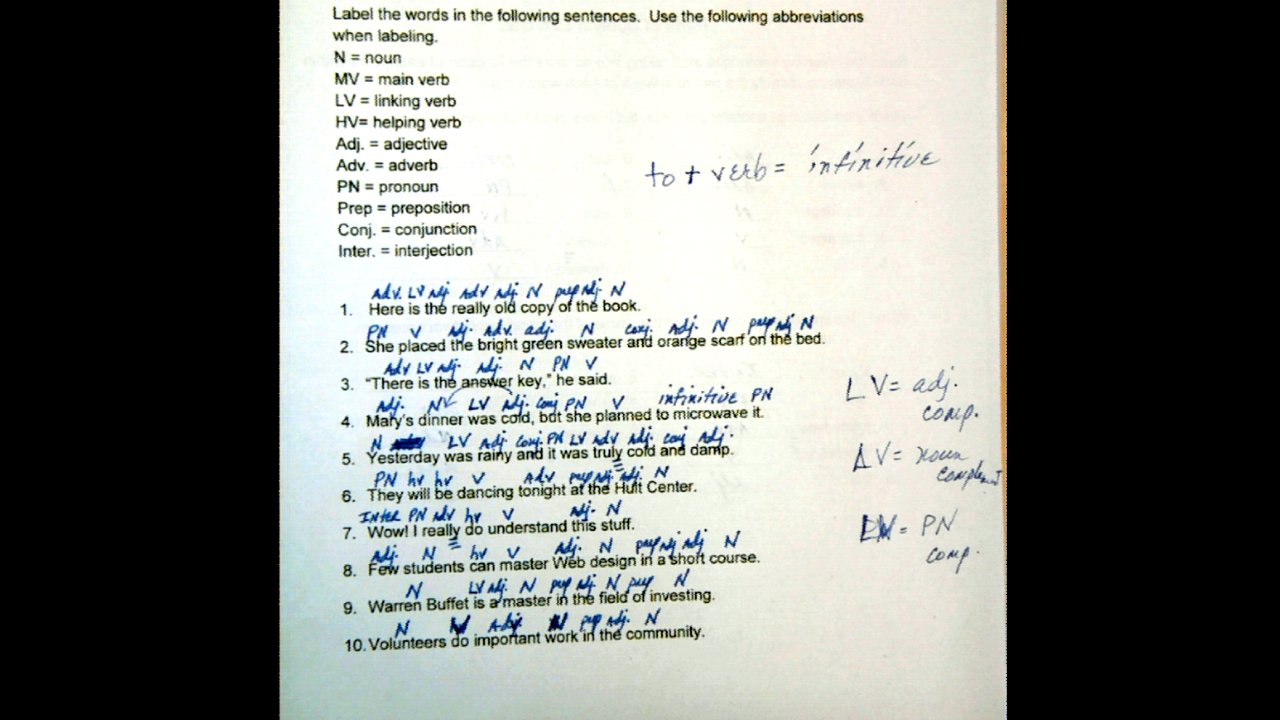 Label the words in the following sentences. Use the following abbreviations
when labeling.
N = noun
MV = main verb
LV = linking verb
HV= helping verb
Adj. = adjective
Adv. = adverb
PN = pronoun
Prep = preposition
Conj. = conjunction
Inter. = interjection
to + verb = infinitive
Adv. LV Adj. Adv Adj. N prep Adj. N
1. Here is the really old copy of the book.
PN V Adj. Adv. adj. N conj. Adj. N prep Adj N
2. She placed the bright green sweater and orange scarf on the bed.
Adv LV Adj. Adj. N PN V
3. "There is the answer key," he said.
Adj. N LV Adj. Conj PN V infinitive PN
4. Mary's dinner was cold, but she planned to microwave it.
N LV Adj Conj. PN LV Adv Adj. conj Adj.
5. Yesterday was rainy and it was truly cold and damp.
PN hv hv V Adv prep Adj Adj. N
6. They will be dancing tonight at the Hult Center.
Inter PN Adv hv V Adj. N
7. Wow! I really do understand this stuff.
Adj. N hv V Adj. N prep Adj Adj N
8. Few students can master Web design in a short course.
N LV Adj. N prep Adj. N prep N
9. Warren Buffet is a master in the field of investing.
N V Adj. N prep Adj. N
10. Volunteers do important work in the community.
LV= adj.
comp.
LV= noun
complement
LV= PN
comp.